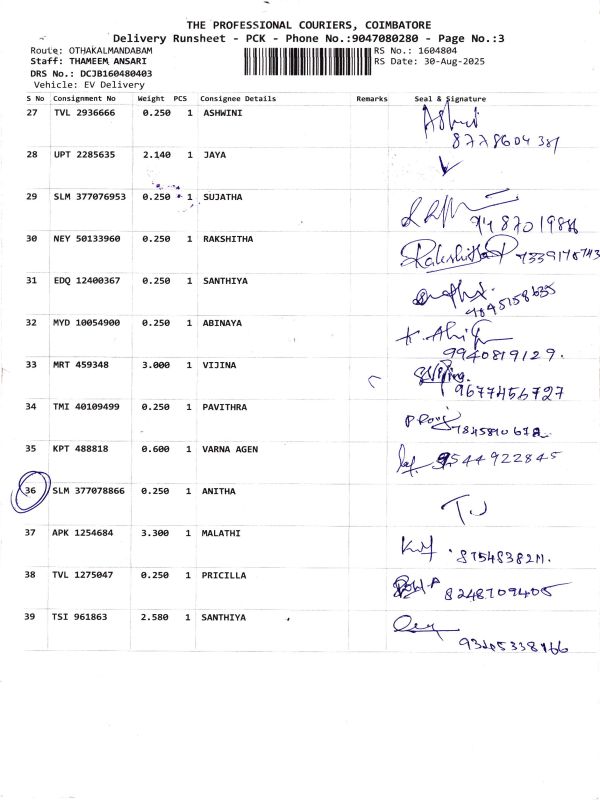 THE PROFESSIONAL COURIERS, COIMBATORE
Delivery Runsheet - PCK - Phone No.:9047080280 - Page No.:3
Route: OTHAKALMANDABAM RS No.: 1604804
Staff: THAMEEM ANSARI RS Date: 30-Aug-2025
DRS No.: DCJB160480403
Vehicle: EV Delivery
S No Consignment No Weight PCS Consignee Details Remarks Seal & Signature
27 TVL 2936666 0.250 1 ASHWINI
28 UPT 2285635 2.140 1 JAYA
29 SLM 377076953 0.250 1 SUJATHA
30 NEY 50133960 0.250 1 RAKSHITHA Rakshitha
31 EDQ 12400367 0.250 1 SANTHIYA
32 MYD 10054900 0.250 1 ABINAYA
9940819129.
33 MRT 459348 3.000 1 VIJINA
9677456727
34 TMI 40109499 0.250 1 PAVITHRA
35 KPT 488818 0.600 1 VARNA AGEN 9544922845
36 SLM 377078866 0.250 1 ANITHA
37 APK 1254684 3.300 1 MALATHI
38 TVL 1275047 0.250 1 PRICILLA 8248709405
39 TSI 961863 2.580 1 SANTHIYA